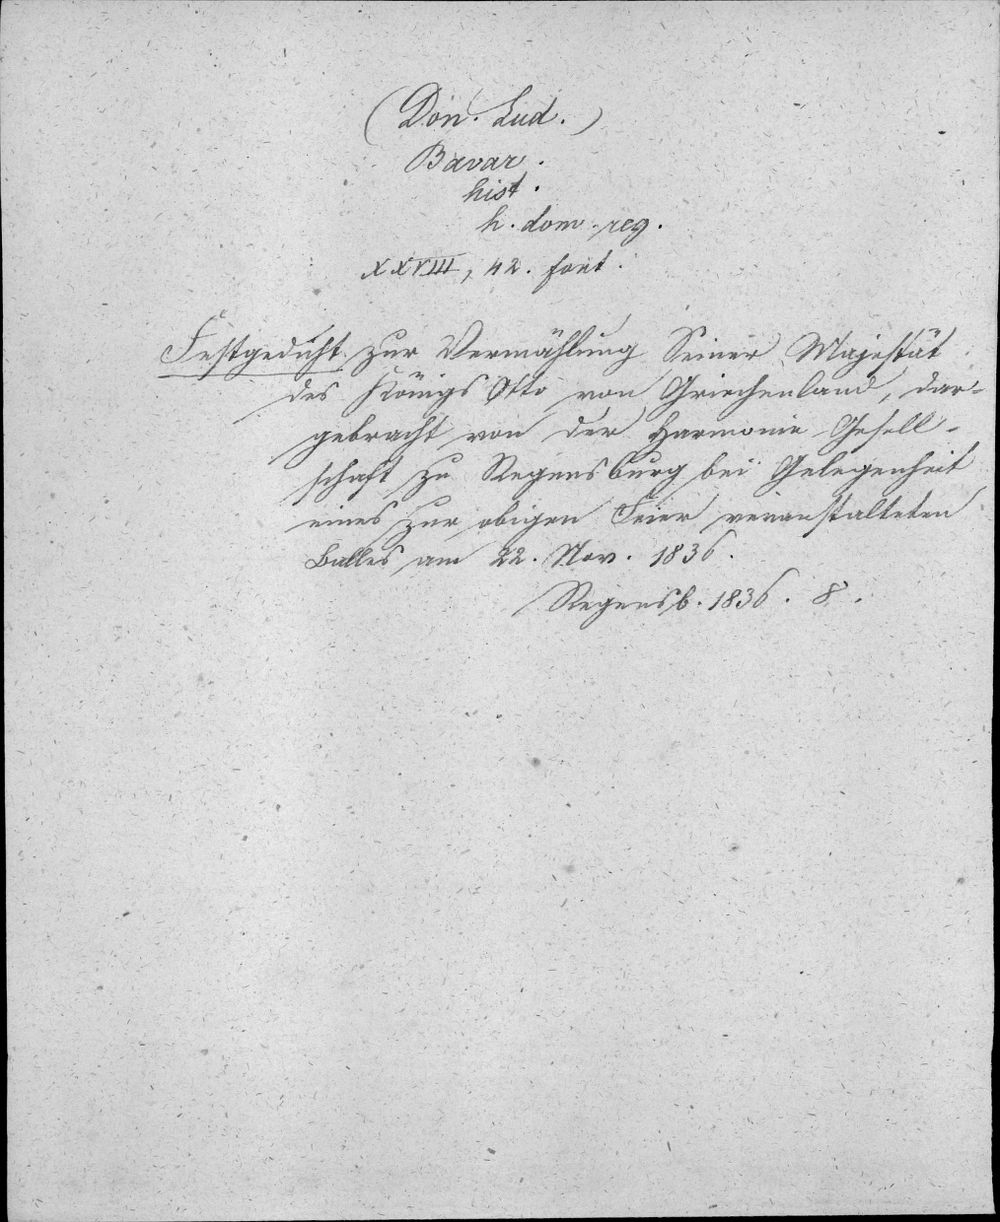 (Don. Lud.)
Bavar.
hist.
h. dom. reg.
XXVIII, 42. font.
Festgedicht zur Vermählung Seiner Majestät
des Königs Otto von Griechenland, dar-
gebracht von der Harmonie Gesell-
schaft zu Regensburg bei Gelegenheit
eines zur obigen Feier veranstalteten
Balles am 22. Nov. 1836.
Regensb. 1836. 8.